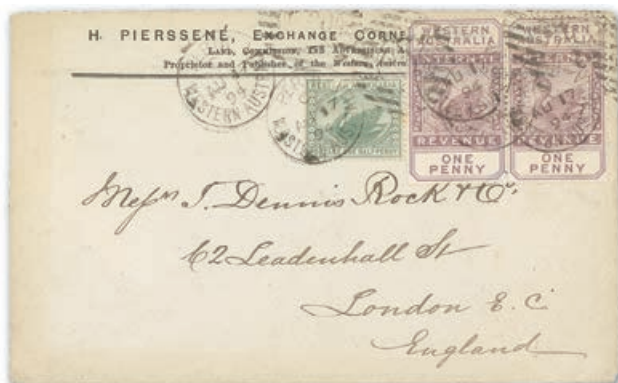 H. PIERSSENÉ, EXCHANGE CORNE
LAND, COMMISSION, AND ADVERTISING A
Proprietor and Publisher of the Western Austra
WESTERN AUST
94
AU 17
94
WESTERN
AUSTRALIA
INTERNAL
REVENUE
ONE
PENNY
WESTERN
AUSTRALIA
REVENUE
ONE
PENNY
HALFPENNY
Messrs J. Dennis Rock & Co.
62 Leadenhall St
London E. C.
England